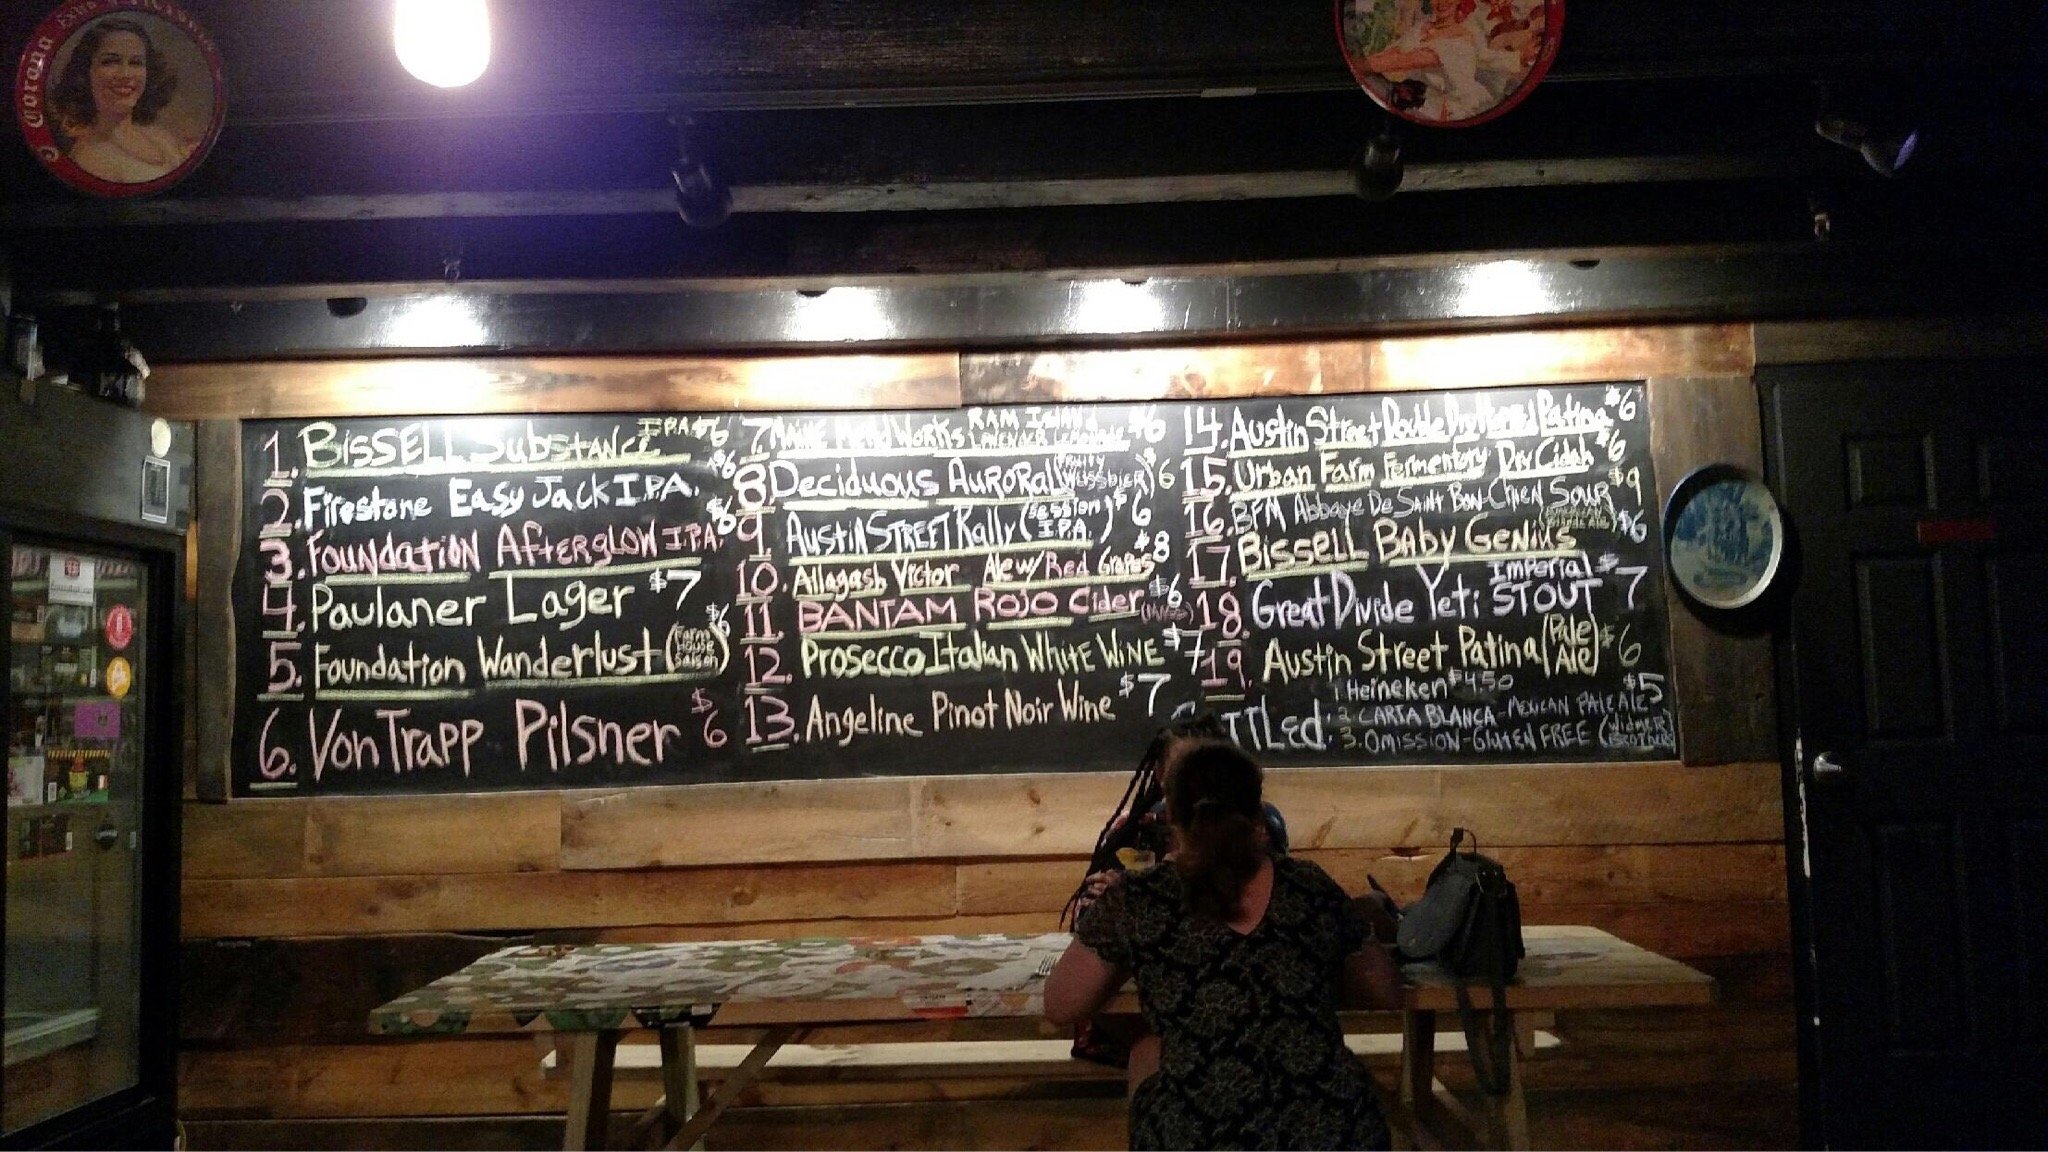 Corona Extra
1. BISSELL SubSTANCE IPA $6
2. Firestone Easy Jack I.P.A. $6
3. FOUNDATION AFTERGLOW I.P.A. $6
4. Paulaner Lager $7
5. Foundation Wanderlust (Farm House Saison) $6
6. Von Trapp Pilsner $6
7. Maine Mead Works RAM ISLAND LAVENDER LEMONADE $6
8. Deciduous Aurorall $6
9. Austin STREET Rally (Session I.P.A.) $6
10. Allagash Victor Ale w/ Red Grapes $8
11. BANTAM ROJO Cider $6
12. Prosecco Italian WHITE WINE $7
13. Angeline Pinot Noir Wine $7
14. Austin Street Double Dry Hopped Patina $6
15. Urban Farm Fermentory Dry Cidah $6
16. BFM Abbaye De Saint Bon-Chien SOUR $9
17. Bissell Baby Genius $6
18. Great Divide Yeti Imperial STOUT $7
19. Austin Street Patina (Pale Ale) $6
TTLed. 1 Heineken $4.50
2. CARTA BLANCA-MEXICAN PALE ALE $5
3. OMISSION-GLUTEN FREE (WIDMER BROTHERS)